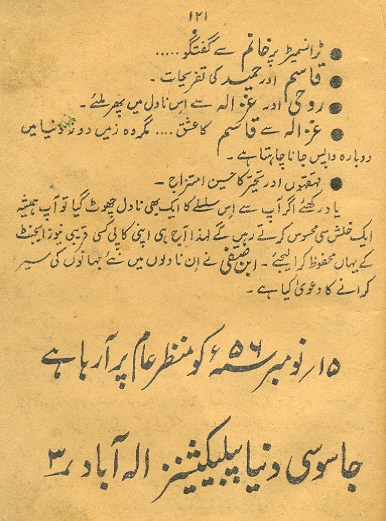 ۱۲۱
● ٹرانسمیٹر پر خانم سے گفتگو .....
● قاسم اور حمید کی تفریحات ۔
● روحی اور غزالہ سے اس ناول میں پھر ملئے ۔
● غزالہ سے قاسم کا عشق .... مگر وہ زمیں دوز دنیا میں
دوبارہ واپس جانا چاہتا ہے ۔
● قہقہوں اور تحیر کا حسین امتزاج ۔
یاد رکھئے اگر آپ سے اس سلسلے کا ایک بھی ناول چھوٹ گیا تو آپ ہمیشہ
ایک خلش سی محسوس کرتے رہیں گے لہذا آج ہی اپنی کاپی کسی قریبی نیوز ایجنٹ
کے یہاں محفوظ کرا لیجئے ۔ ابن صفی نے ان ناولوں میں نئے جہانوں کی سیر
کرانے کا دعویٰ کیا ہے ۔
۱۵ر نومبر سنہ ۵۶ء کو منظر عام پر آ رہا ہے
جاسوسی دنیا پبلیکیشنز الہ آباد ۳